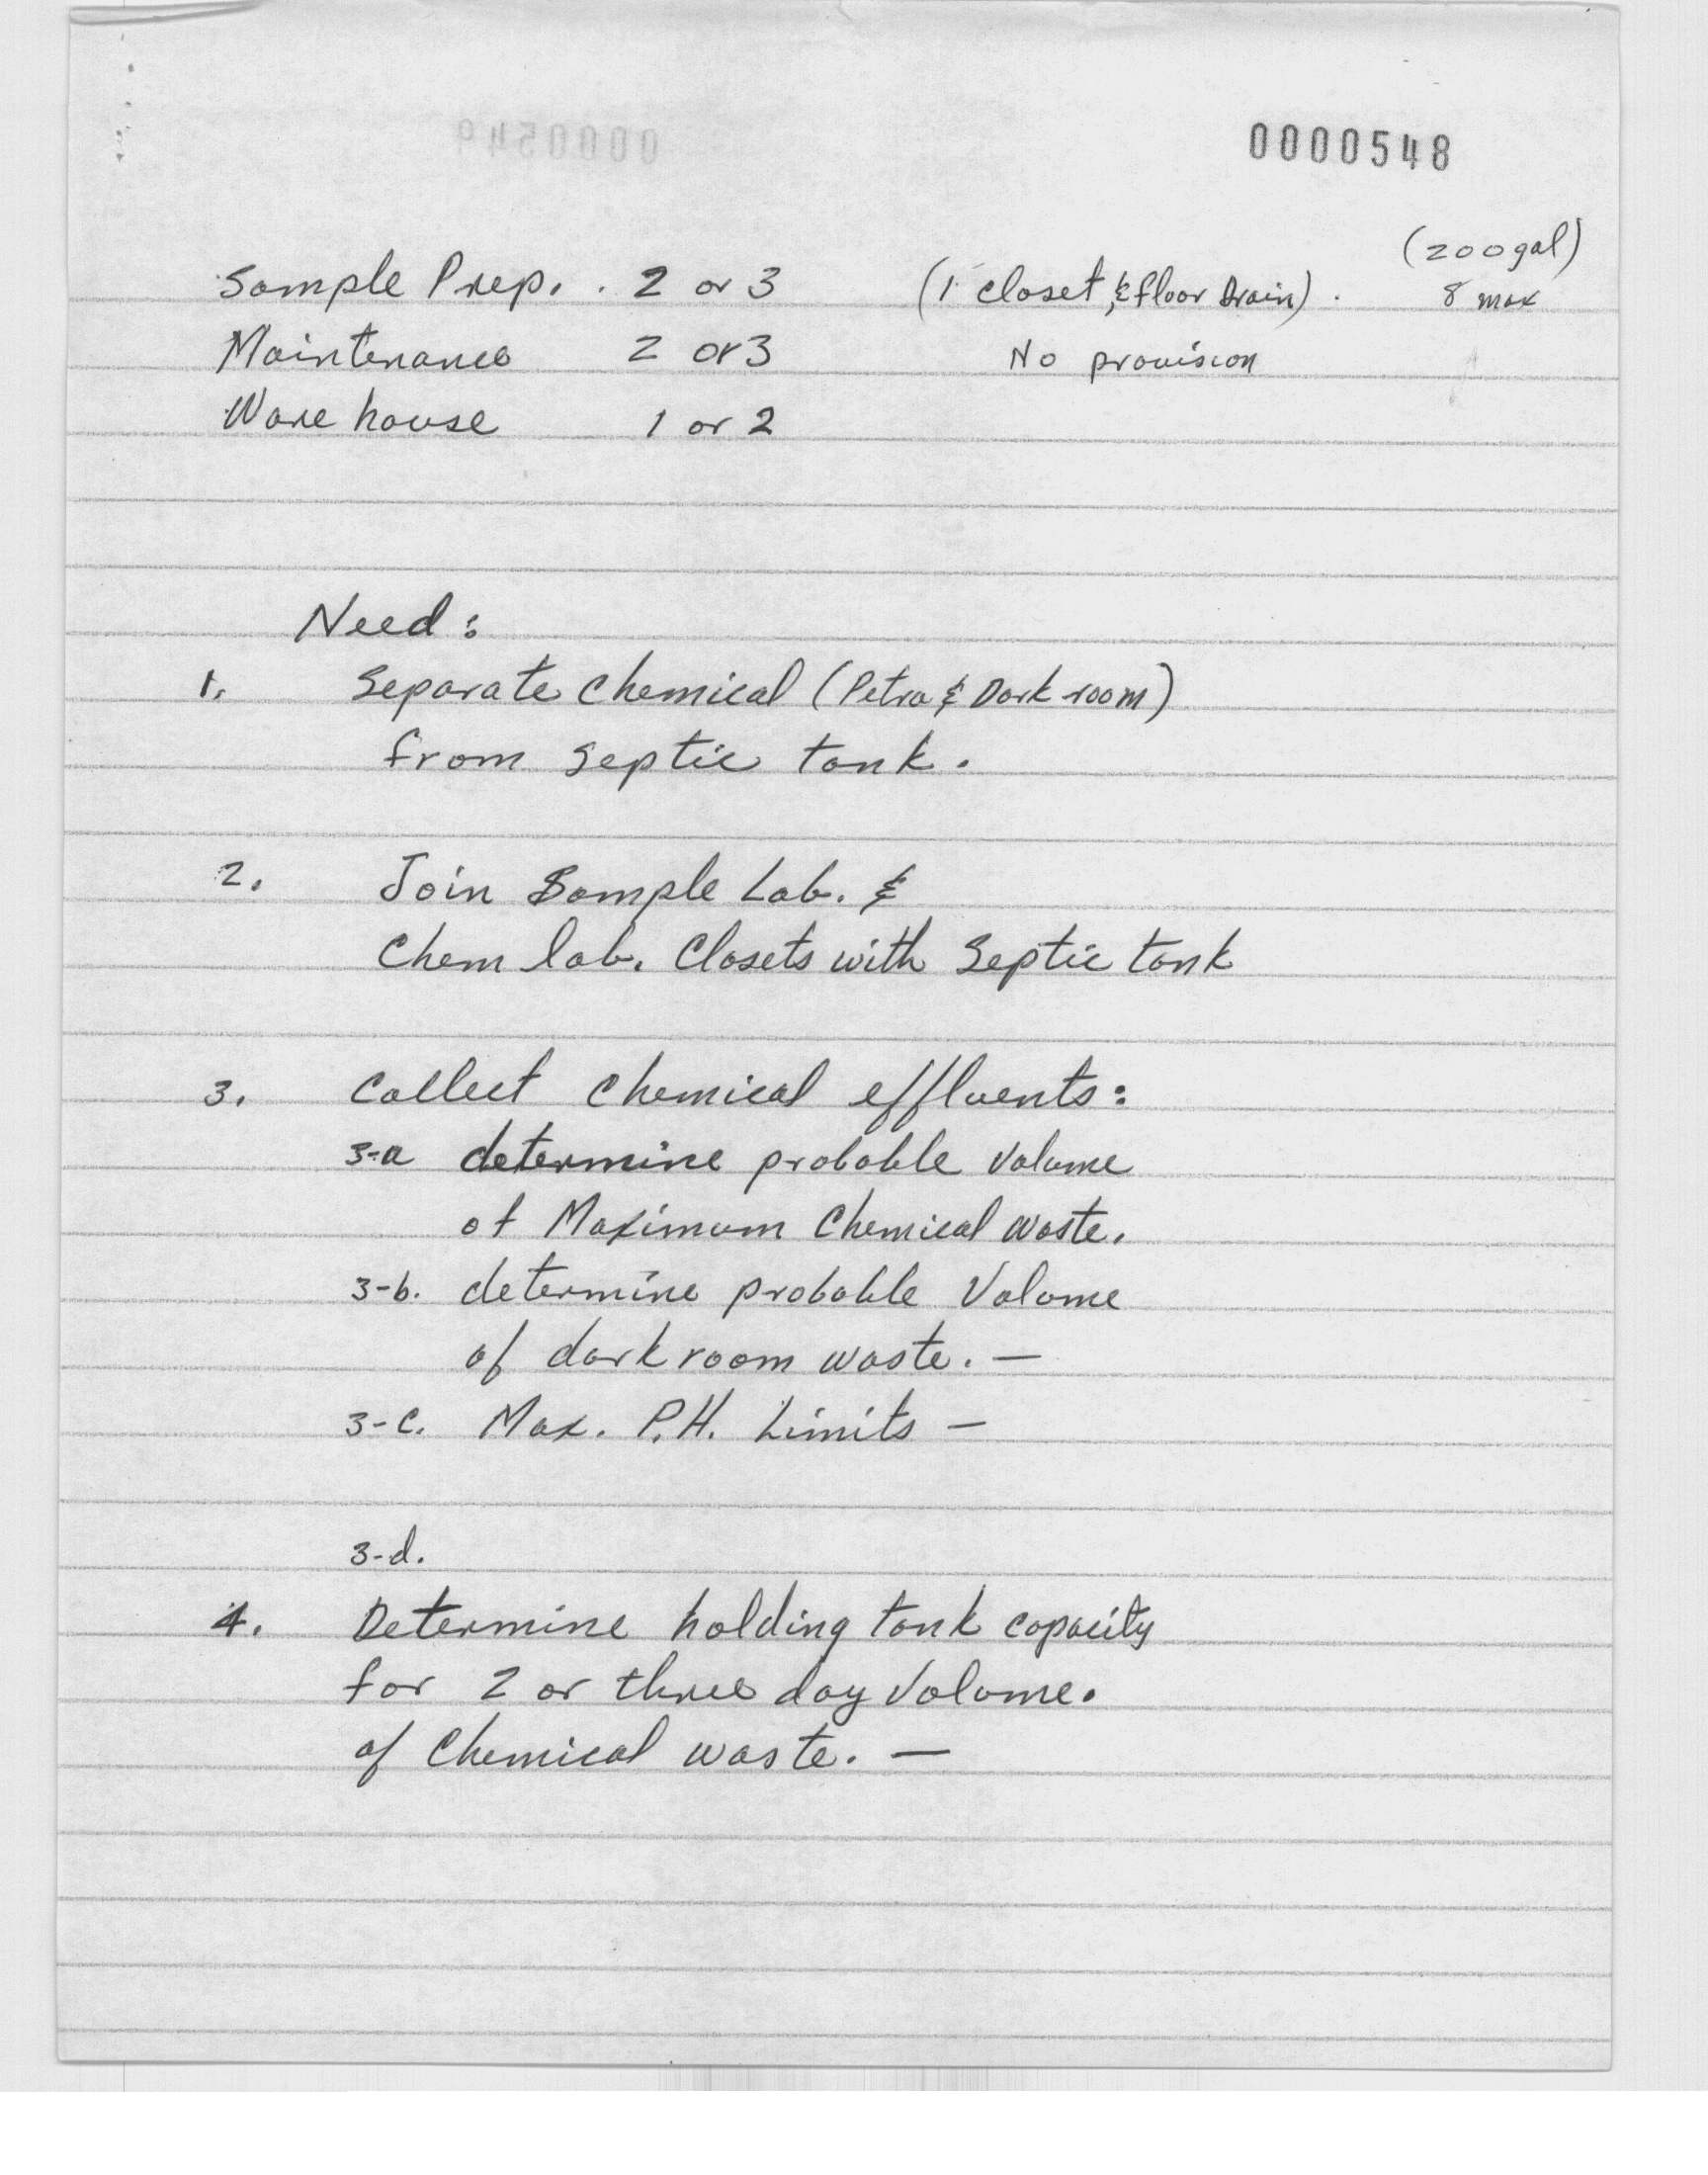 0000548
0000549
(200 gal)
Sample Prep. . 2 or 3 (1 closet, & floor Drain) . 8 max
Maintenance 2 or 3 No provision
Ware house 1 or 2
Need:
1. Separate Chemical (Petro & Dark room)
from septic tank.
2. Join Sample Lab. &
Chem lab. Closets with Septic tank
3. Collect Chemical effluents:
3-a determine probable volume
of Maximum Chemical waste.
3-b. determine probable Volume
of dark room waste. —
3-c. Max. P.H. Limits —
3-d.
4. Determine holding tank capacity
for 2 or three day volume.
of Chemical waste. —